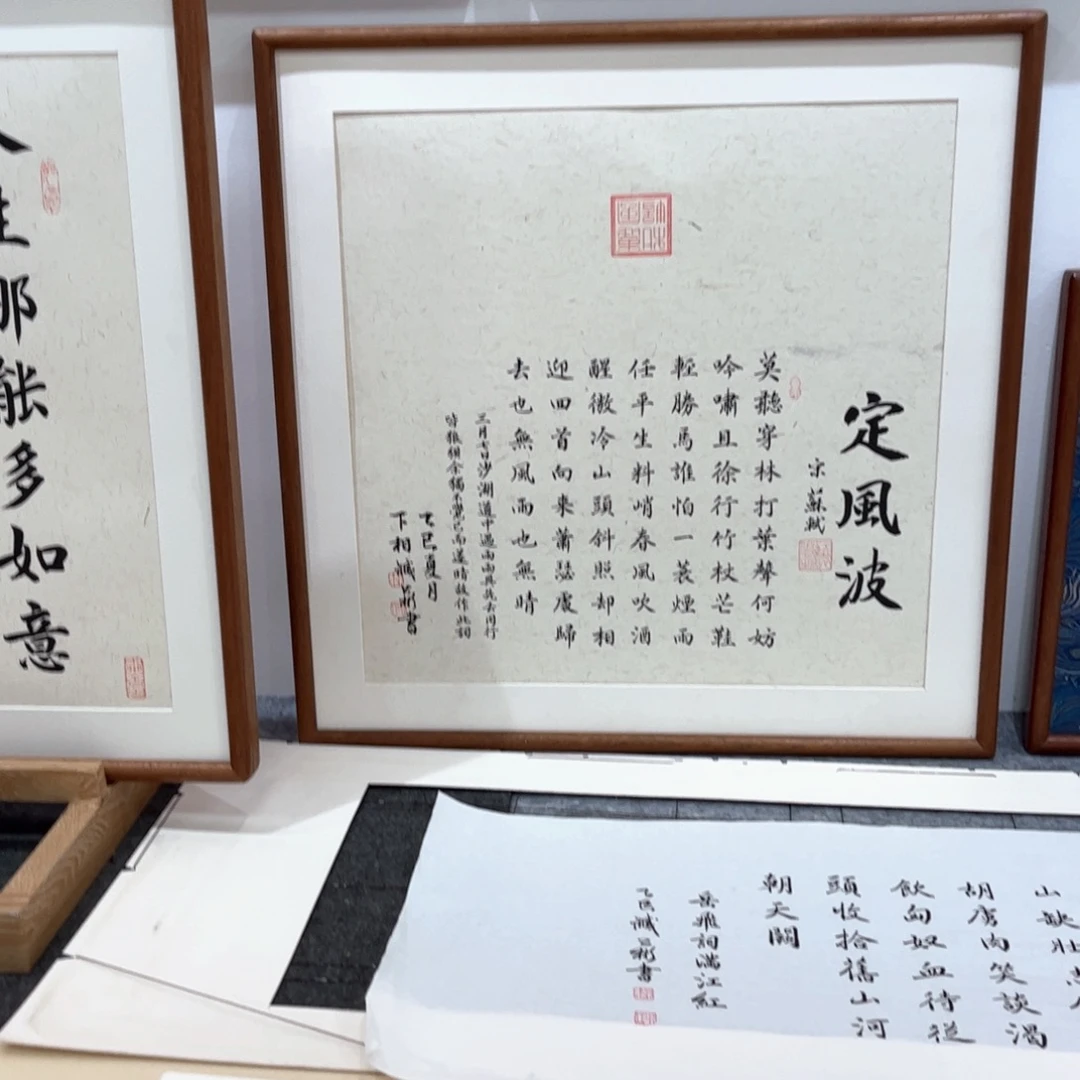 定風波
宋 蘇軾
莫聽穿林打葉聲何妨
吟嘯且徐行竹杖芒鞋
輕勝馬誰怕一蓑煙雨
任平生料峭春風吹酒
醒微冷山頭斜照却相
迎回首向来蕭瑟處歸
去也無風雨也無晴
三月七日沙湖道中遇雨雨具先去同行
皆狼狽余獨不覺已而遂晴故作此詞
乙巳夏月
下相誠書
人生那能多如意
山缺壯志
胡虜肉笑談渴
飲匈奴血待從
頭收拾舊山河
朝天闕
岳飛詞滿江紅
乙巳誠書